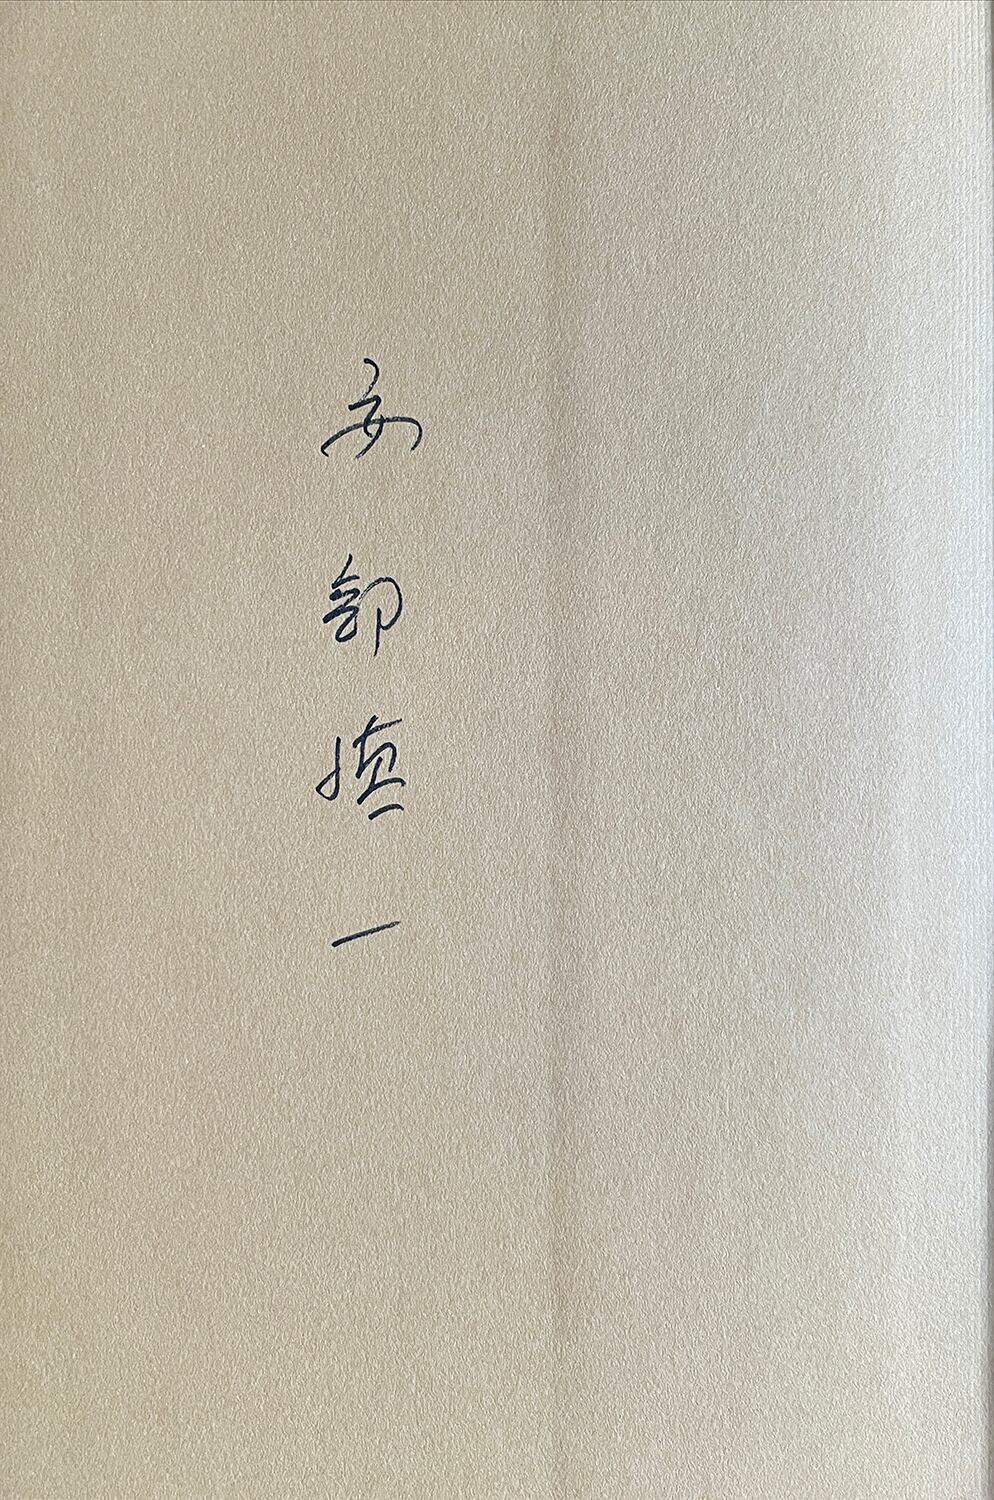 安部慎一